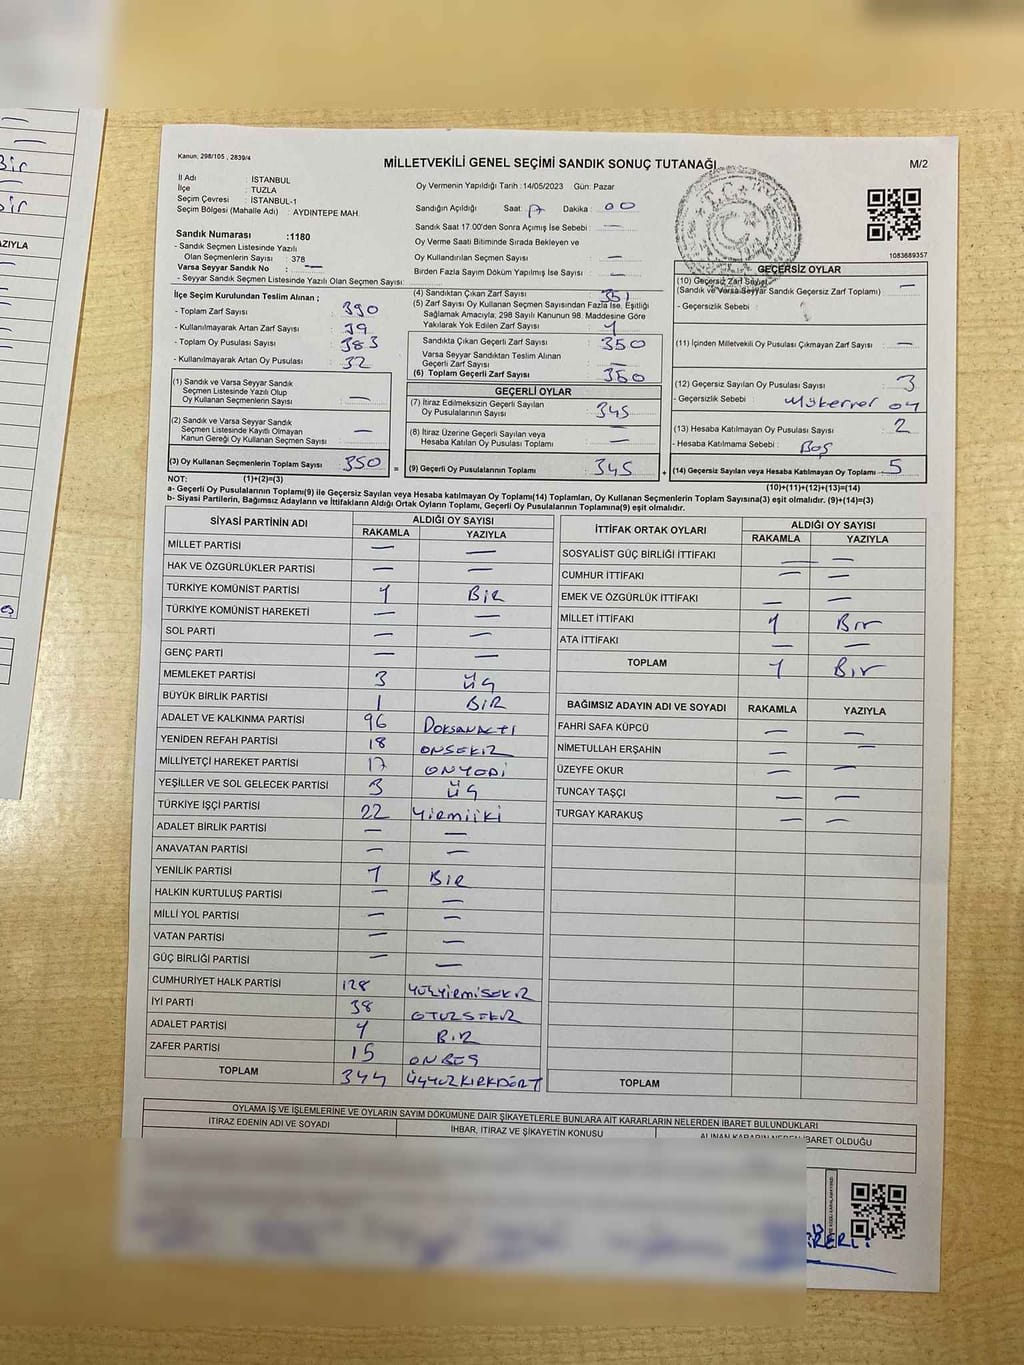 Kanun, 298/105 , 2839/4
MİLLETVEKİLİ GENEL SEÇİMİ SANDIK SONUÇ TUTANAĞI
M/2
İl Adı : İSTANBUL
İlçe : TUZLA
Seçim Çevresi : İSTANBUL-1
Seçim Bölgesi (Mahalle Adı) : AYDINTEPE MAH.
Oy Vermenin Yapıldığı Tarih :14/05/2023 Gün: Pazar
Sandığın Açıldığı Saat: 17 Dakika : 00
Sandık Saat 17.00'den Sonra Açımış İse Sebebi : —
Oy Verme Saati Bitiminde Sırada Bekleyen ve
Oy Kullandırılan Seçmenlerin Sayısı : —
Birden Fazla Sayım Döküm Yapılmış İse Sayısı : —
T.C.
1083689357
Sandık Numarası :1180
- Sandık Seçmen Listesinde Yazılı
Olan Seçmenlerin Sayısı : 378
Varsa Seyyar Sandık No : —
- Seyyar Sandık Seçmen Listesinde Yazılı Olan Seçmen Sayısı:
İlçe Seçim Kurulundan Teslim Alınan ;
- Toplam Zarf Sayısı : 390
- Kullanılmayarak Artan Zarf Sayısı : 39
- Toplam Oy Pusulası Sayısı : 383
- Kullanılmayarak Artan Oy Pusulası : 32
(1) Sandık ve Varsa Seyyar Sandık
Seçmen Listesinde Yazılı Olup
Oy Kullanan Seçmenlerin Sayısı : —
(2) Sandık ve Varsa Seyyar Sandık
Seçmen Listesinde Kayıtlı Olmayan
Kanun Gereği Oy Kullanan Seçmen Sayısı : —
(3) Oy Kullanan Seçmenlerin Toplam Sayısı 350 =
(4) Sandıktan Çıkan Zarf Sayısı : 351
(5) Zarf Sayısı Oy Kullanan Seçmen Sayısından Fazla İse, Eşitliği
Sağlamak Amacıyla, 298 Sayılı Kanunun 98. Maddesine Göre
Yakılarak Yok Edilen Zarf Sayısı : 1
Sandıkta Çıkan Geçerli Zarf Sayısı : 350
Varsa Seyyar Sandıktan Teslim Alınan
Geçerli Zarf Sayısı :
(6) Toplam Geçerli Zarf Sayısı : 350
GEÇERLİ OYLAR
(7) İtiraz Edilmeksizin Geçerli Sayılan
Oy Pusulalarının Sayısı : 345
(8) İtiraz Üzerine Geçerli Sayılan veya
Hesaba Katılan Oy Pusulası Toplamı : —
(9) Geçerli Oy Pusulalarının Toplamı : 345 +
GEÇERSİZ OYLAR
(10) Geçersiz Zarf Sayısı
(Sandık ve Varsa Seyyar Sandık Geçersiz Zarf Toplamı) : —
- Geçersizlik Sebebi :
(11) İçinden Milletvekili Oy Pusulası Çıkmayan Zarf Sayısı : —
(12) Geçersiz Sayılan Oy Pusulası Sayısı : 3
- Geçersizlik Sebebi : Mükerrer oy
(13) Hesaba Katılmayan Oy Pusulası Sayısı : 2
- Hesaba Katılmama Sebebi : Boş
(14) Geçersiz Sayılan veya Hesaba Katılmayan Oy Toplamı : 5
NOT: (1)+(2)=(3)
(10)+(11)+(12)+(13)=(14)
a- Geçerli Oy Pusulalarının Toplamı(9) ile Geçersiz Sayılan veya Hesaba katılmayan Oy Toplamı(14) Toplamları, Oy Kullanan Seçmenlerin Toplam Sayısına(3) eşit olmalıdır. (9)+(14)=(3)
b- Siyasi Partilerin, Bağımsız Adayların ve İttifakların Aldığı Ortak Oyların Toplamı, Geçerli Oy Pusulalarının Toplamına(9) eşit olmalıdır.
SİYASİ PARTİNİN ADI ALDIĞI OY SAYISI
RAKAMLA YAZIYLA
MİLLET PARTİSİ — —
HAK VE ÖZGÜRLÜKLER PARTİSİ — —
TÜRKİYE KOMÜNİST PARTİSİ 1 BİR
TÜRKİYE KOMÜNİST HAREKETİ — —
SOL PARTİ — —
GENÇ PARTİ — —
MEMLEKET PARTİSİ 3 üç
BÜYÜK BİRLİK PARTİSİ 1 BİR
ADALET VE KALKINMA PARTİSİ 96 DOKSANALTI
YENİDEN REFAH PARTİSİ 18 ONSEKİZ
MİLLİYETÇİ HAREKET PARTİSİ 17 ONYEDİ
YEŞİLLER VE SOL GELECEK PARTİSİ 3 üç
TÜRKİYE İŞÇİ PARTİSİ 22 Yirmiiki
ADALET BİRLİK PARTİSİ — —
ANAVATAN PARTİSİ — —
YENİLİK PARTİSİ 1 BİR
HALKIN KURTULUŞ PARTİSİ — —
MİLLİ YOL PARTİSİ — —
VATAN PARTİSİ — —
GÜÇ BİRLİĞİ PARTİSİ — —
CUMHURİYET HALK PARTİSİ 128 YÜZYİRMİSEKİZ
İYİ PARTİ 38 OTUZSEKİZ
ADALET PARTİSİ 1 BİR
ZAFER PARTİSİ 15 ONBEŞ
TOPLAM 344 ÜÇYÜZKIRKDÖRT
İTTİFAK ORTAK OYLARI ALDIĞI OY SAYISI
RAKAMLA YAZIYLA
SOSYALİST GÜÇ BİRLİĞİ İTTİFAKI — —
CUMHUR İTTİFAKI — —
EMEK VE ÖZGÜRLÜK İTTİFAKI — —
MİLLET İTTİFAKI 1 Bir
ATA İTTİFAKI — —
TOPLAM 1 Bir
BAĞIMSIZ ADAYIN ADI VE SOYADI RAKAMLA YAZIYLA
FAHRİ SAFA KÜPCÜ — —
NİMETULLAH ERŞAHİN — —
ÜZEYFE OKUR — —
TUNCAY TAŞÇI — —
TURGAY KARAKUŞ — —
TOPLAM
OYLAMA İŞ VE İŞLEMLERİNE VE OYLARIN SAYIM DÖKÜMÜNE DAİR ŞİKAYETLERLE BUNLARA AİT KARARLARIN NELERDEN İBARET BULUNDUKLARI
İTİRAZ EDENİN ADI VE SOYADI İHBAR, İTİRAZ VE ŞİKAYETİN KONUSU ALINAN KARARIN NEDEN İBARET OLDUĞU